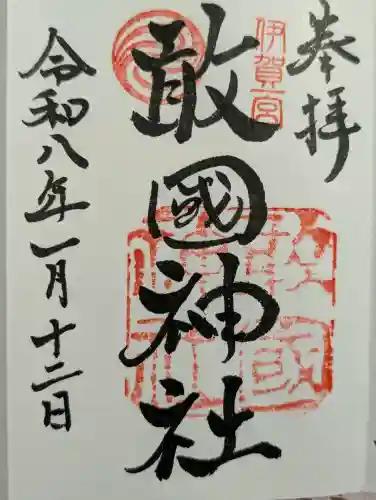 奉拝
伊賀一宮
敢國神社
令和八年一月十二日